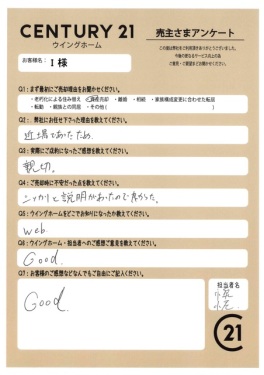 CENTURY 21
ウイングホーム
売主さまアンケート
この度は弊社をご利用頂きありがとうございました。
今後の更なるサービス向上の為
ご意見・ご要望をお聞かせください。
お客様名： I 様
Q1：まず最初にご売却理由をお聞かせください。
・老朽化による住み替え ・資産売却 ・離婚 ・相続 ・家族構成変更に合わせた転居
・転勤 ・親族との同居 ・その他(
Q2：弊社にお任せ下さった理由を教えてください。
近場であったため.
Q3：実際にご成約になったご感想を教えてください。
親切。
Q4：ご売却時に不安だった点を教えてください。
シッカリと説明があったので良かった。
Q5：ウイングホームをどこでお知りになったか教えてください。
Web
Q6：ウイングホーム・担当者へのご感想ご意見を教えてください。
Good.
Q7：お客様のご感想などなんでもご自由にご記入ください。
Good.
担当者名
C21